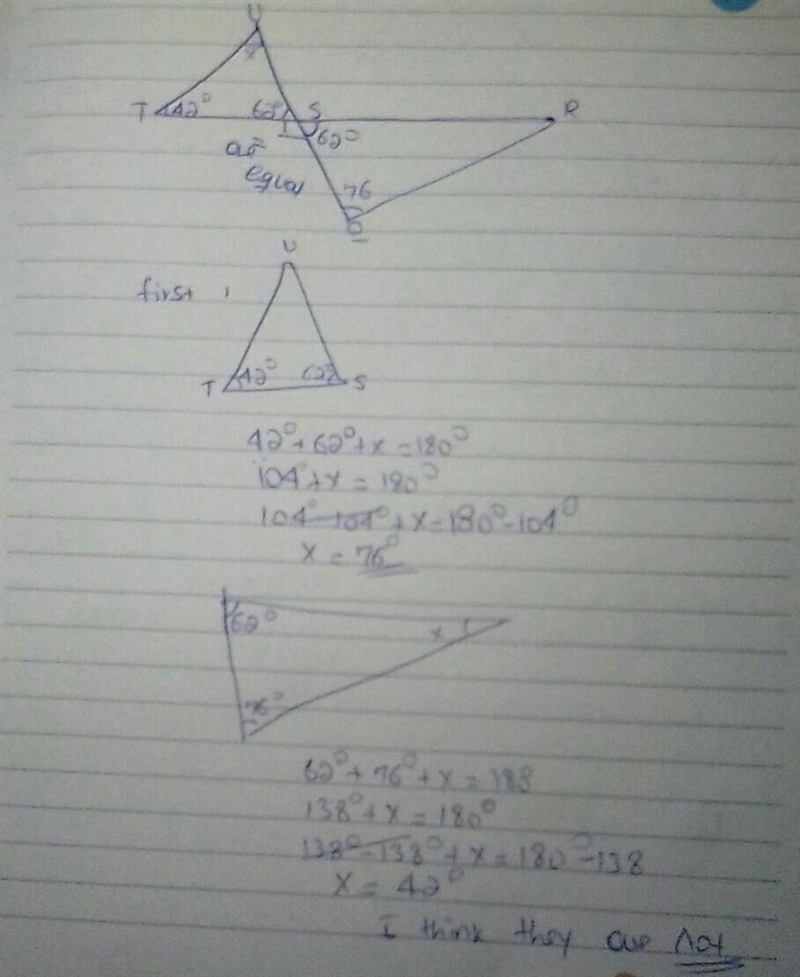 U
x
T 42° 62° S R
62°
are
equal 76
Q
U
first,
T 42° 62° S
42° + 62° + x = 180°
104° + x = 180°
104° - 104° + x = 180° - 104°
x = 76°
62° x
76°
62° + 76° + x = 188
138° + x = 180°
138° - 138° + x = 180° - 138
x = 42°
I think they are Not